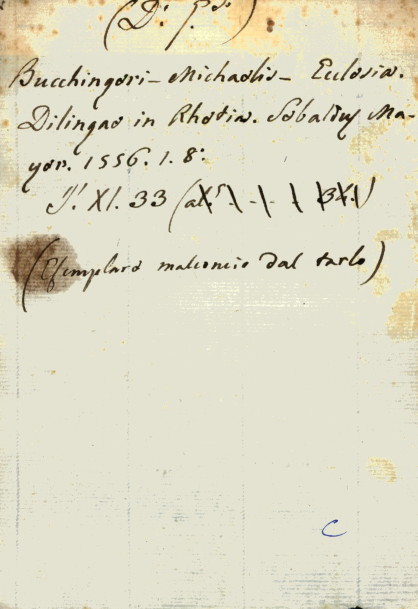 (D: G:do)
Bucchingeri - Michaelis - Ecclesia.
Dilingae in Rhetia. Sebaldus Ma-
yer. 1556. 1. 8:
J! XI. 33 (al
(Esemplare malconcio dal tarlo)
C